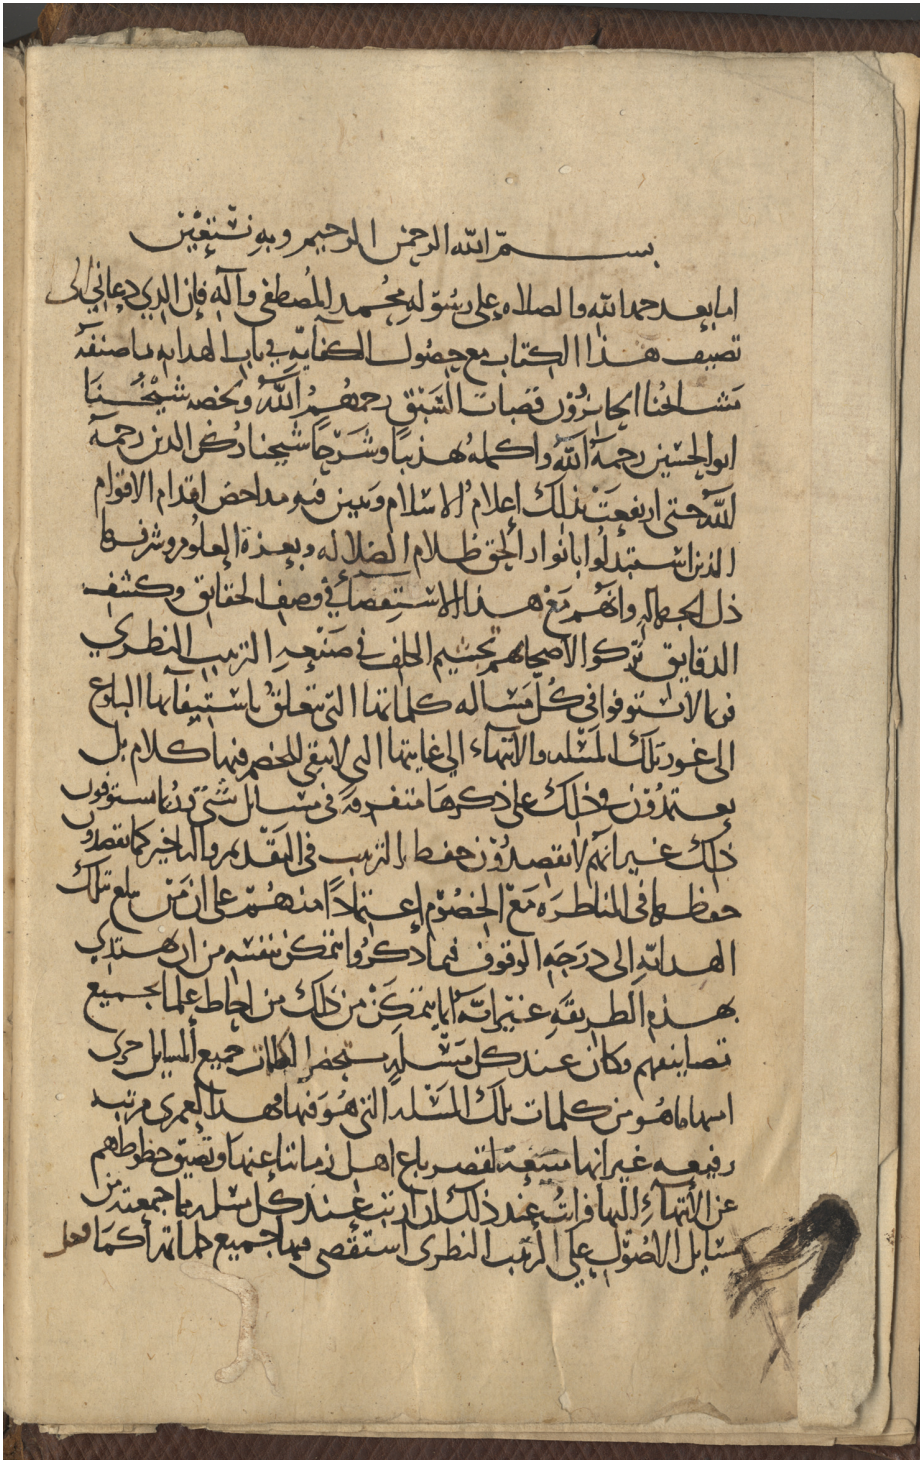 بسم الله الرحمن الرحيم وبه نستعين
اما بعد حمد الله والصلاه على رسوله محمد المصطفى وآله فان الذي دعاني الى
تصنيف هذا الكتاب مع حصول الكفايه في باب الهدايه بما صنفه
مشائخنا الحائزون قصبات السبق رحمهم الله ولخصه شيخنا
ابو الحسين رحمه الله واكمله تهذيبا وشرحا شيخنا ركن الدين رحمه
الله حتى ارتفعت بذلك اعلام الاسلام وتبين فيه مداحض اقدام الاقوام
الذين استبدلوا بانوار الحق ظلام الضلاله وبعزة العلوم وشرفها
ذل الجهاله وانهم مع هذا الاستقصآء في وصف الحقايق وكشف
الدقايق تركوا لاصحابهم تجشيم الكلف في صنعه الترتيب النظري
فربما لا يستوفوا في كل مسئاله كلماتها التي تتعلق باستيفآئها البلوغ
الى غور تلك المسئله والانتهاء الى غايتها التي لا يبقى للخصم فيها كلام بل
يعتمدون في ذلك على ذكرها متفرقه في مسايل شتى وربما يستوفون
ذلك غير انهم لا يقصدون حفظ الترتيب في التقديم والتاخير كما يقصدون
حفظهما في المناظره مع الخصوم اعتمادا منهم على ان من بلغ تلك
الهدايه الى درجه الوقوف فيما ذكروا يتمكن بنفسه من ان يهتدي
بهذه الطريقه غير انه انما يتمكن من ذلك من احاط علما بجميع
تصانيفهم وكان عند كل مسئله مستحضرا لكلمات جميع المسايل حرى
اسهاما هو من كلمات تلك المسئله التي هو فيها وهذا لعمرى مرتبه
رفيعه غير انها متعبة لقصر باع اهل زماننا عنها وتضيق حظوظهم
عن الانتهآء اليها فرايت عند ذلك ان ارتب عند كل مسئله ما جمعته من
مسايل الاصول على الترتيب النظرى استقصى فيها جميع كلماتها كما فعل